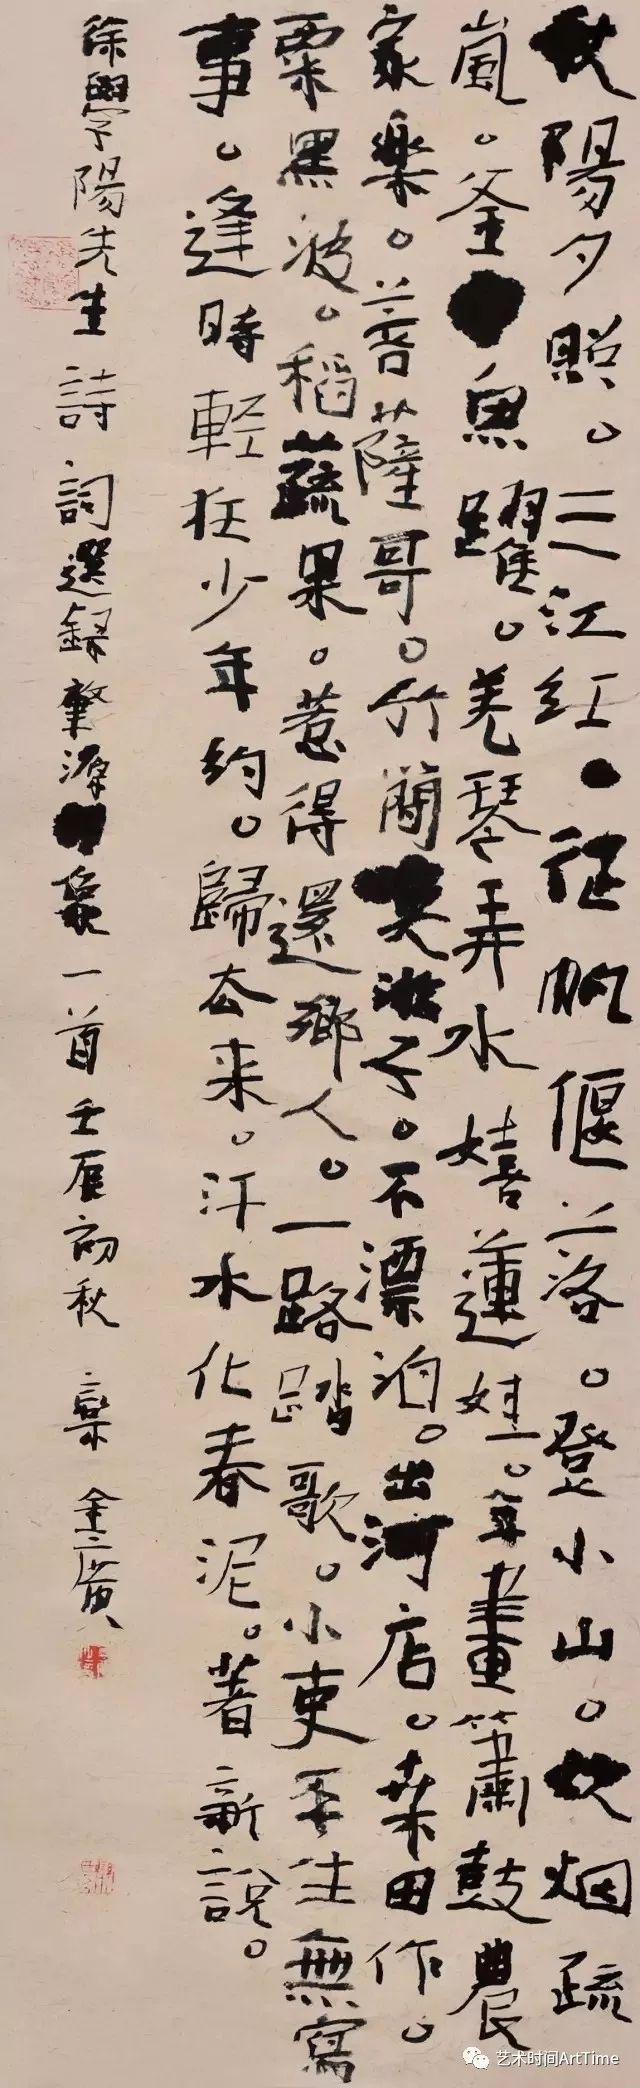 秋陽夕照。三江紅·征帆偃落。登小山。炊烟疏
嵐。釜魚躍。羌琴弄水嬉蓮娃。年畫簫鼓農
家樂。菩薩哥。竹蘭笑游子。不漂泊。出河店。桑田作。
粟黑波。稻蔬果。惹得還鄉人。一路踏歌。小吏平生無寫
事。逢時輕狂少年約。歸去来。汗水化春泥。著新說。
徐學陽先生詩詞選録肇源一首壬辰初秋 金廣
艺术时间ArtTime